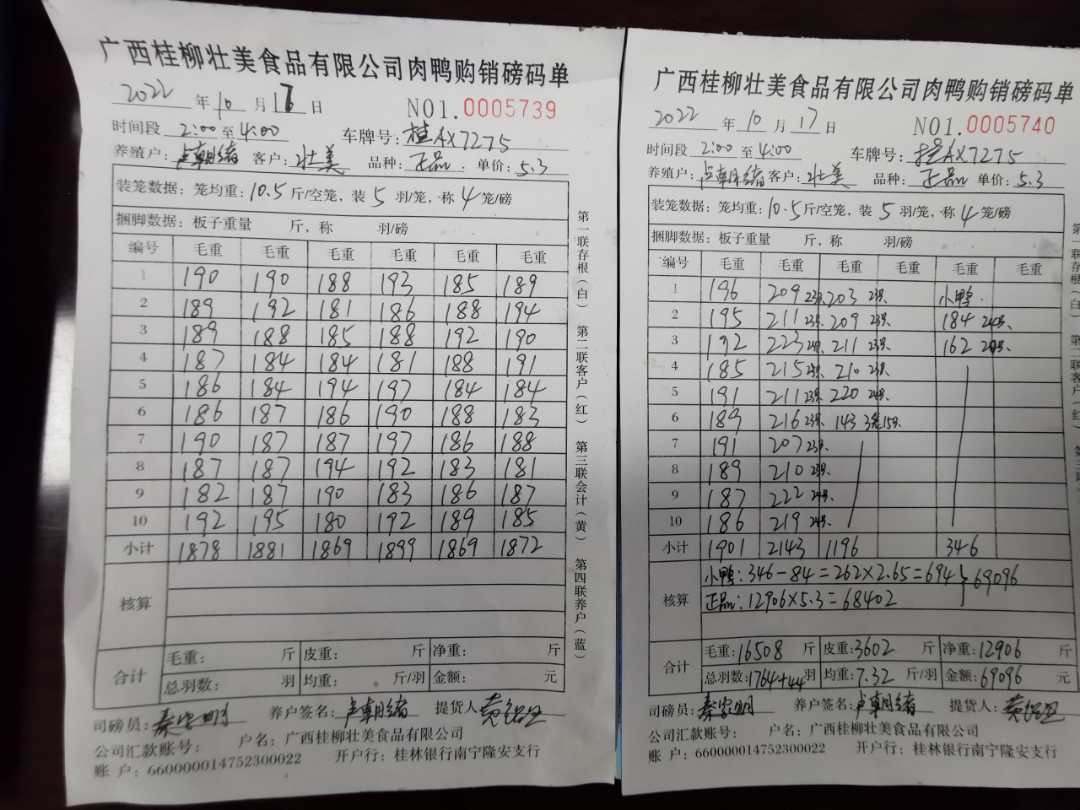 广西桂柳壮美食品有限公司肉鸭购销磅码单
2022 年 10 月 17 日 NO1.0005739
时间段 2:00 至 4:00 车牌号: 桂AX7275
养殖户: 卢朝绪 客户: 壮美 品种: 正品 单价: 5.3
装笼数据: 笼均重: 10.5 斤/空笼, 装 5 羽/笼, 称 4 笼/磅
捆脚数据: 板子重量 斤, 称 羽/磅
编号 毛重 毛重 毛重 毛重 毛重 毛重
1 190 190 188 193 185 189
2 189 192 181 186 188 194
3 189 188 185 188 192 190
4 187 184 184 181 188 191
5 186 184 194 197 184 184
6 186 187 186 190 188 183
7 190 187 187 197 186 188
8 187 187 194 192 183 181
9 182 187 190 183 186 187
10 192 195 180 192 189 185
小计 1878 1881 1869 1899 1869 1872
核算
合计 毛重: 斤 皮重: 斤 净重: 斤
总羽数: 羽 均重: 斤/羽 金额: 元
司磅员: 养户签名: 卢朝绪 提货人:
公司汇款账号: 户名: 广西桂柳壮美食品有限公司
账 户: 660000014752300022 开户行: 桂林银行南宁隆安支行
第一联存根(白) 第二联客户(红) 第三联会计(黄) 第四联养户(蓝)
广西桂柳壮美食品有限公司肉鸭购销磅码单
2022 年 10 月 17 日 NO1.0005740
时间段 2:00 至 4:00 车牌号: 桂AX7275
养殖户: 卢朝绪 客户: 壮美 品种: 正品 单价: 5.3
装笼数据: 笼均重: 10.5 斤/空笼, 装 5 羽/笼, 称 4 笼/磅
捆脚数据: 板子重量 斤, 称 羽/磅
编号 毛重 毛重 毛重 毛重 毛重 毛重
1 196 209 23只 203 23只 小鸭.
2 195 211 23只 209 23只 184 24只
3 192 223 24只 211 23只 162 20只
4 185 215 23只 210 23只
5 191 211 23只 220 24只
6 189 216 23只 143 3笼15只
7 191 207 23只
8 189 210 23只
9 187 222 24只
10 186 219 24只
小计 1901 2143 1196 346
核算 小鸭: 346-84=262×2.65=694 } 69096
正品: 12906×5.3=68402
合计 毛重: 16508 斤 皮重: 3602 斤 净重: 12906 斤
总羽数: 1764+44 羽 均重: 7.32 斤/羽 金额: 69096 元
司磅员: 养户签名: 卢朝绪 提货人:
公司汇款账号: 户名: 广西桂柳壮美食品有限公司
账 户: 660000014752300022 开户行: 桂林银行南宁隆安支行